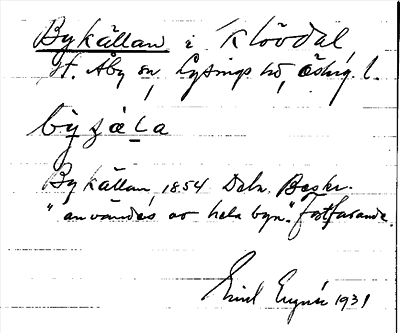 Bykällan i Klövdal,
St. Åby sn, Lysings hd, Östg. l.
by çæLa
Bykällan, 1854 Dahr. Beskr.
"användes av hela byn." Fortfarande.
Emil 1931